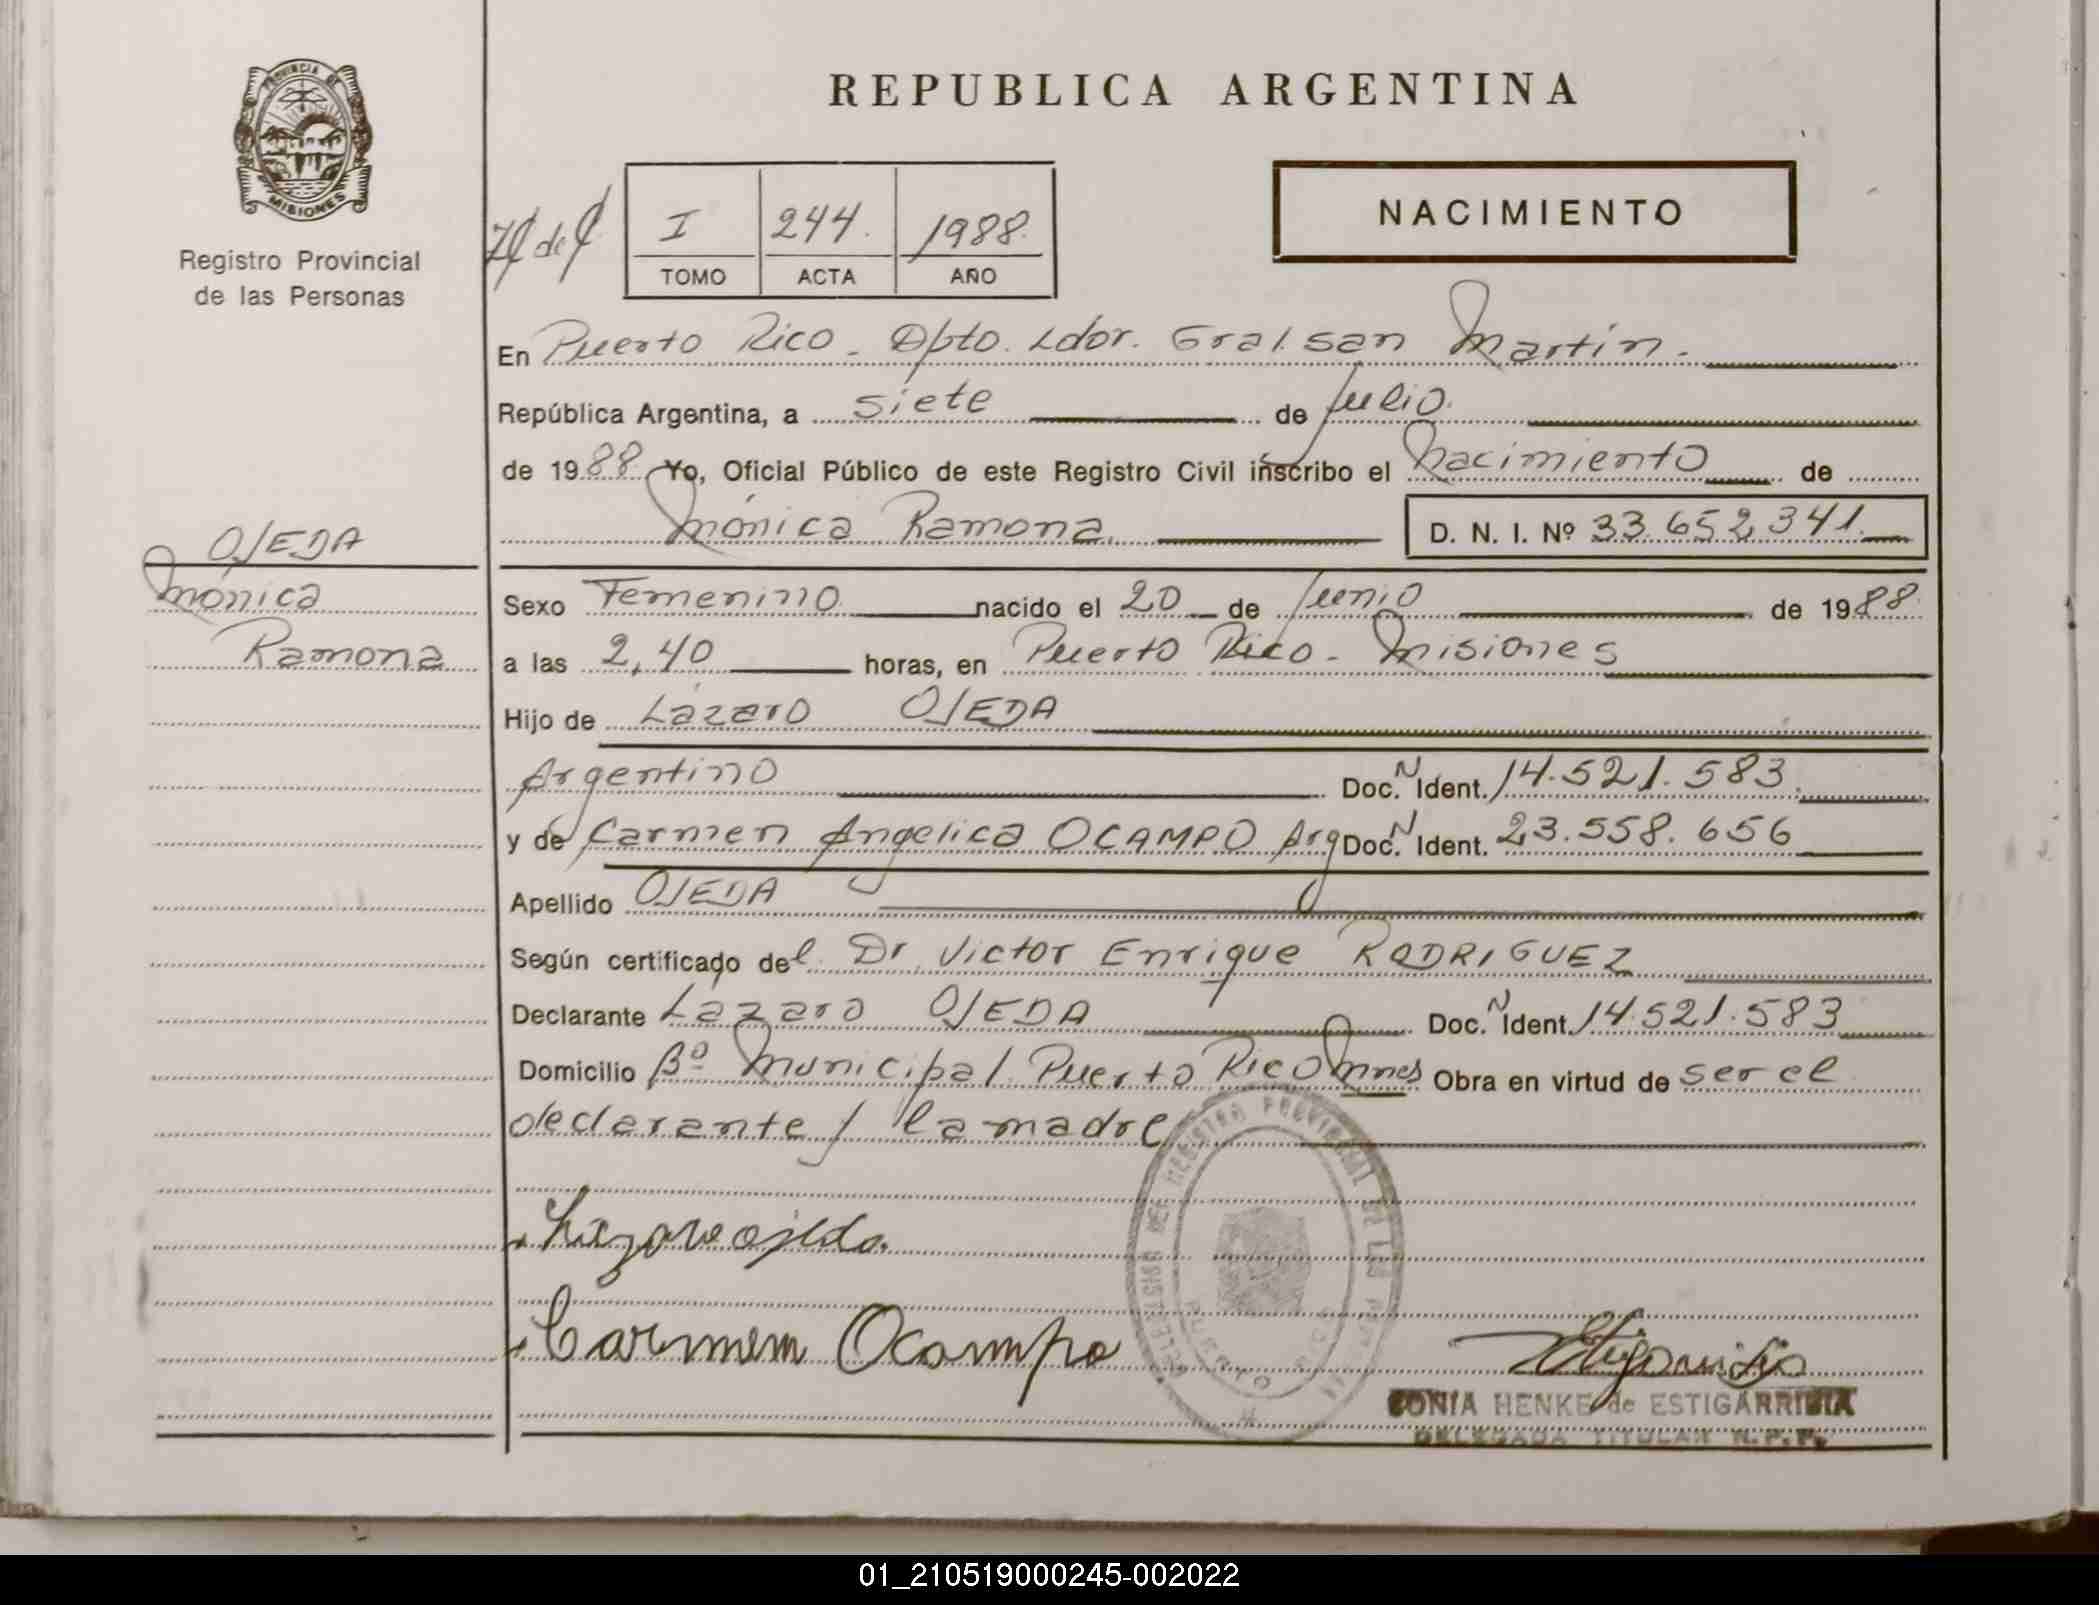 PROVINCIA DE
MISIONES
Registro Provincial
de las Personas
REPUBLICA ARGENTINA
I 244. 1988.
TOMO ACTA AÑO
NACIMIENTO
En Puerto Rico - Dpto. Ldor. Gral. San Martín.
República Argentina, a siete de Julio.
de 1988. Yo, Oficial Público de este Registro Civil inscribo el Nacimiento de
Mónica Ramona. D. N. I. Nº 33.652.341.
OJEDA
Mónica
Ramona
Sexo Femenino nacido el 20 de Junio de 1988.
a las 2,40 horas, en Puerto Rico - Misiones
Hijo de Lázaro OJEDA
Argentino Doc. N Ident. 14.521.583.
y de Carmen Angelica OCAMPO Arg Doc. N Ident. 23.558.656
Apellido OJEDA
Según certificado del Dr Victor Enrique RODRIGUEZ
Declarante Lázaro OJEDA Doc. N Ident. 14.521.583
Domicilio Bº Municipal Puerto Rico Mnes Obra en virtud de ser el
declarante / la madre
Lazaro ojeda.
Carmem Ocampo
SONIA HENKE de ESTIGARRIBIA
DELEGADA TITULAR R.P.P.
01_210519000245-002022